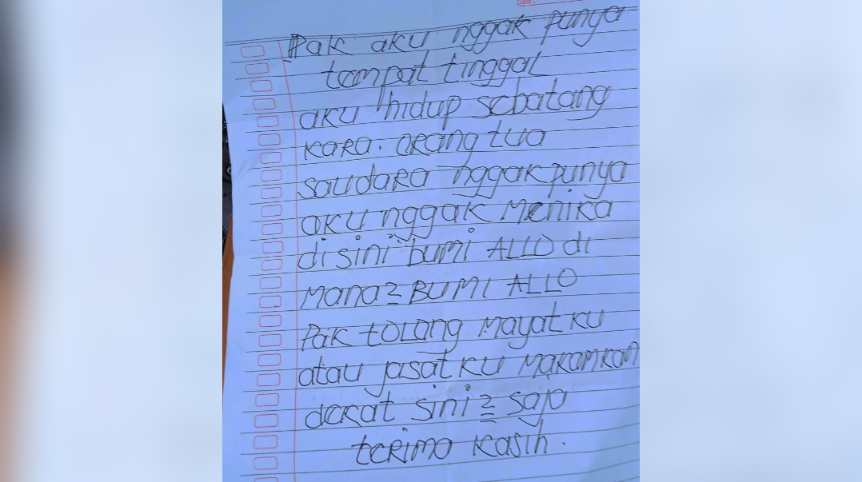 Pak aku nggak punya
tempat tinggal
aku hidup sebatang
kara. orang tua
saudara nggak punya
aku nggak menika
disini bumi ALLO di
mana2 BUMI ALLO
Pak tolong mayat ku
atau jasat ku makamkan
dekat sini2 sajo
terimo kasih.